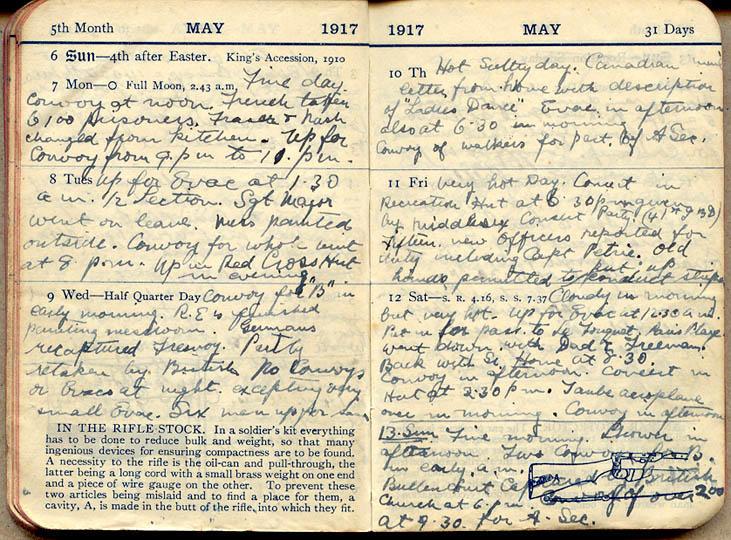 5th Month MAY 1917
6 Sun—4th after Easter. King's Accession, 1910
7 Mon—O Full Moon, 2.43 a.m. Fine day.
Convoy at noon. French taken
6,100 prisoners. Fraser & Nash
changed from kitchen. Up for
Convoy from 9. p.m to 11. p.m.
8 Tues Up for Evac at 1.30
a.m. ½ section. Sgt Major
went on leave. Mess painted
outside. Convoy for whole unit
at 8 p.m. Up in Red Cross Hut
in evening.
9 Wed—Half Quarter Day Convoy for "B" in
early morning. R.E's finished
painting messroom. Germans
recaptured Fresnoy. Partly
retaken by British No Convoys
or Evacs at night. excepting very
small Evac. Six men up per
IN THE RIFLE STOCK. In a soldier's kit everything
has to be done to reduce bulk and weight, so that many
ingenious devices for ensuring compactness are to be found.
A necessity to the rifle is the oil-can and pull-through, the
latter being a long cord with a small brass weight on one end
and a piece of wire gauge on the other. To prevent these
two articles being mislaid and to find a place for them, a
cavity, A, is made in the butt of the rifle, into which they fit.
1917 MAY 31 Days
10 Th Hot Sultry day. Canadian mail
letter from home with description
of "Ladies Dance" Evac in afternoon
also at 6.30 in morning
Convoy of walkers for part. of A Sec.
11 Fri Very hot Day. Concert in
Recreation Hut at 6.30 pm given
by Middlesex Concert Party.
Fifteen new Officers reported for
duty including Capt Petrie. Old
hands permitted to put up conduct stripes
12 Sat—S. R. 4.16, S. S. 7.37 Cloudy in morning
but very hot. Up for Evac at 12.30 a.m.
Put in for pass. to Le Touquet, Paris Plage.
Went down with Dad & Freeman.
Back with St. Home at 8.30.
Convoy in afternoon. Concert in
Hut at 2.30 p.m. Taube aeroplane
over in morning. Convoy in afternoon
13. Sun Fine morning. Shower in
afternoon. Two Convoys B.
in early a.m.
Bullecourt Captured by British
Church at 6 p.m. Convoy of over 200
at 9.30. for A. Sec.
A